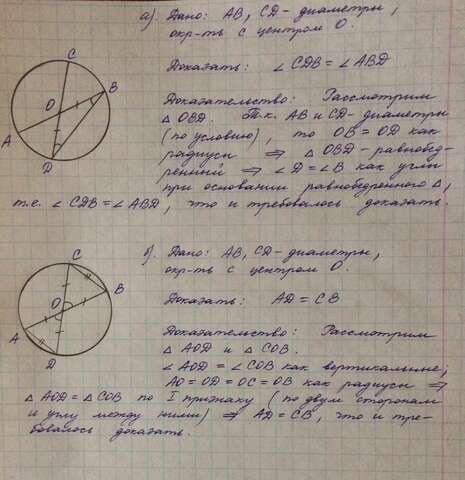 а). Дано: AB, CD - диаметры,
окр-ть с центром O.
Доказать: ∠CDB = ∠ABD
Доказательство: Рассмотрим
△OBD. Т.к. AB и CD - диаметры
(по условию), то OB = OD как
радиусы ⇒ △OBD - равнобед-
ренный ⇒ ∠D = ∠B как углы
при основании равнобедренного △,
т.е. ∠CDB = ∠ABD, что и требовалось доказать.
A
D
O
C
B
б). Дано: AB, CD - диаметры,
окр-ть с центром O.
Доказать: AD = CB
Доказательство: Рассмотрим
△AOD и △COB.
∠AOD = ∠COB как вертикальные;
AO = OD = OC = OB как радиусы ⇒
△AOD = △COB по I признаку (по двум сторонам
и углу между ними) ⇒ AD = CB, что и тре-
бовалось доказать.
A
D
O
C
B